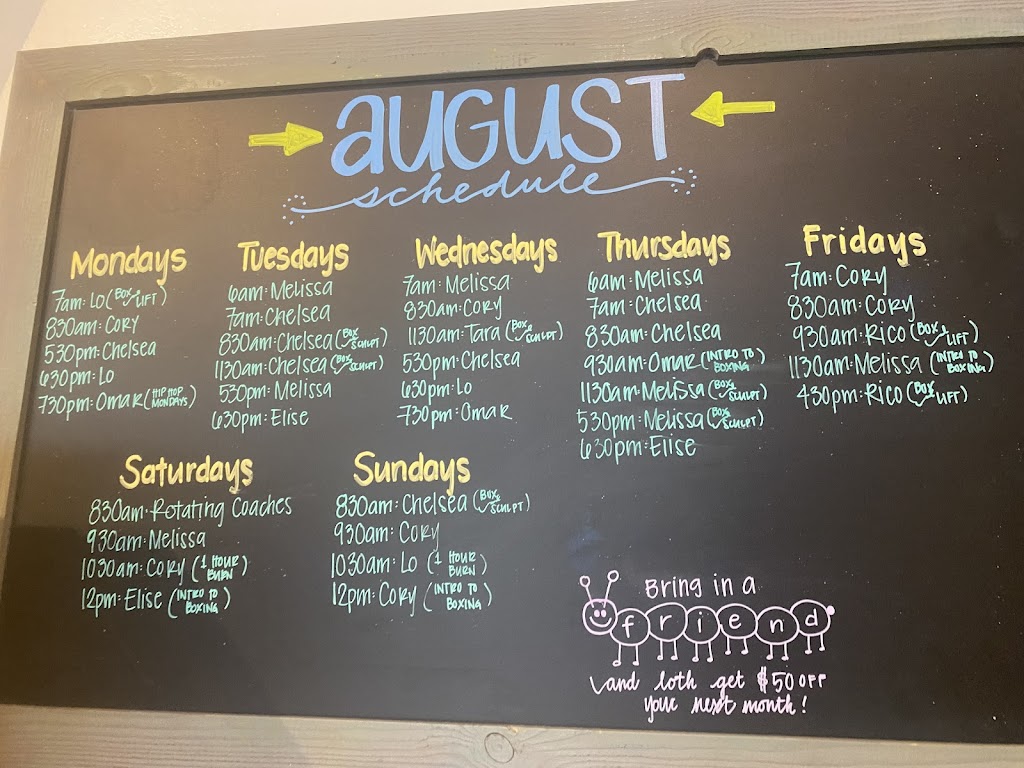 AUGUST
schedule
Mondays
7am: Lo (BOX & LIFT)
830am: CORY
530pm: Chelsea
630pm: Lo
730pm: Omar (HIP HOP MONDAYS)
Tuesdays
6am: Melissa
7am: Chelsea
830am: Chelsea (BOX & SCULPT)
1130am: Chelsea (BOX & SCULPT)
530pm: Melissa
630pm: Elise
Wednesdays
7am: Melissa
830am: CORY
1130am: Tara (BOX & SCULPT)
530pm: Chelsea
630pm: Lo
730pm: Omar
Thursdays
6am: Melissa
7am: Chelsea
830am: Chelsea
930am: Omar (INTRO TO BOXING)
1130am: Melissa (BOX & SCULPT)
530pm: Melissa (BOX & SCULPT)
630pm: Elise
Fridays
7am: CORY
830am: CORY
930am: RICO (BOX & LIFT)
1130am: Melissa (INTRO TO BOXING)
430pm: RICO (BOX & LIFT)
Saturdays
830am: Rotating Coaches
930am: Melissa
1030am: CORY (1 HOUR BURN)
12pm: Elise (INTRO TO BOXING)
Sundays
830am: Chelsea (BOX & SCULPT)
930am: CORY
1030am: Lo (1 HOUR BURN)
12pm: CORY (INTRO TO BOXING)
Bring in a
friend
and both get $50 OFF
your next month!